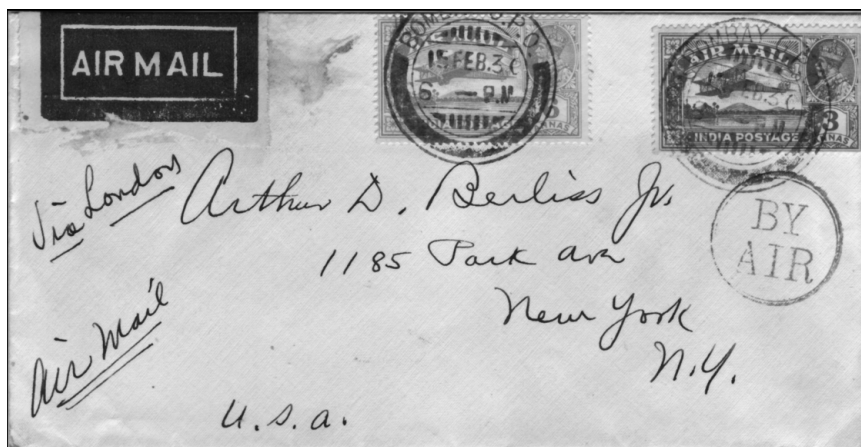 AIR MAIL
BOMBAY G.P.O.
15 FEB.30
6 - P.M
BOMBAY
FEB.30
AIR MAIL
3
INDIA POSTAGE
ANNAS
BY
AIR
Via London
Arthur D. Berliss Jr.
1185 Park Ave
New York
N.Y.
Air Mail
U.S.A.